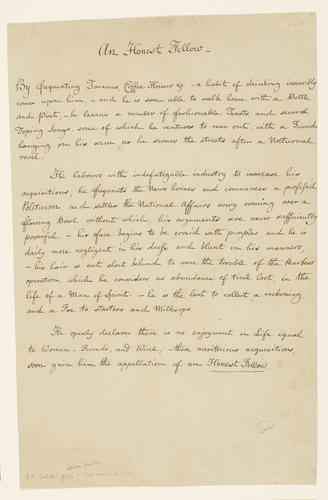 An Honest Fellow_
By frequenting Taverns, Coffee Houses &c - a habit of drinking insensibly
comes upon him, - and he is soon able to walk home with a Bottle
and Pint, - he learns a number of fashionable Toasts and several
Toping Songs, some of which he ventures to roar out, with a Friend
hanging on his arm as he scours the streets after a Nocturnal
revel.
He labours with indefatigable industry to increase his
acquisitions, he frequents the News houses and commences a profess'd
Politician and settles the National Affairs every evening over a
flowing Bowl without which, his arguments are never sufficiently
powerful, - his face begins to be cover'd with pimples and he is
daily more negligent in his dress and blunt in his manners,
- his hair is cut short behind to save the trouble of the Barbers
operation, which he considers as abundance of time lost, in the
life of a Man of Spirit. - he is the last to collect a reckoning
and a Foe to starters and Milksops.
He openly declares there is no enjoyment in Life equal
to Women - Friends, and Wine, - these meritorious acquisitions
soon gain him the appellation of an Honest Fellow.